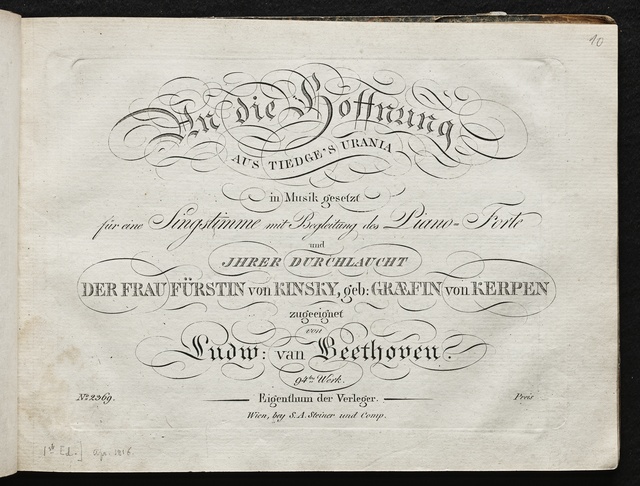 10
An die Hoffnung
AUS TIEDGE'S URANIA
in Musik gesetzt
für eine Singstimme mit Begleitung des Piano=Forte
und
JHRER DURCHLAUCHT
DER FRAU FÜRSTIN von KINSKY, geb: GRÆFIN von KERPEN
zugeeignet
von
Ludw: van Beethoven.
94tes Werk.
No. 2369. Eigenthum der Verleger. Preis
Wien, bey S. A. Steiner und Comp.
[1st Ed.] Apr. 1816.